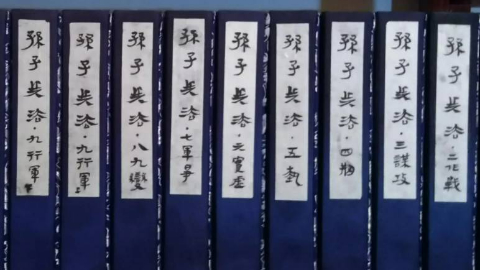 孫子兵法·二作戰
孫子兵法·三謀攻
孫子兵法·四
孫子兵法·五埶
孫子兵法·六實虛
孫子兵法·七軍爭
孫子兵法·八九變
孫子兵法·九行軍
孫子兵法·九行軍